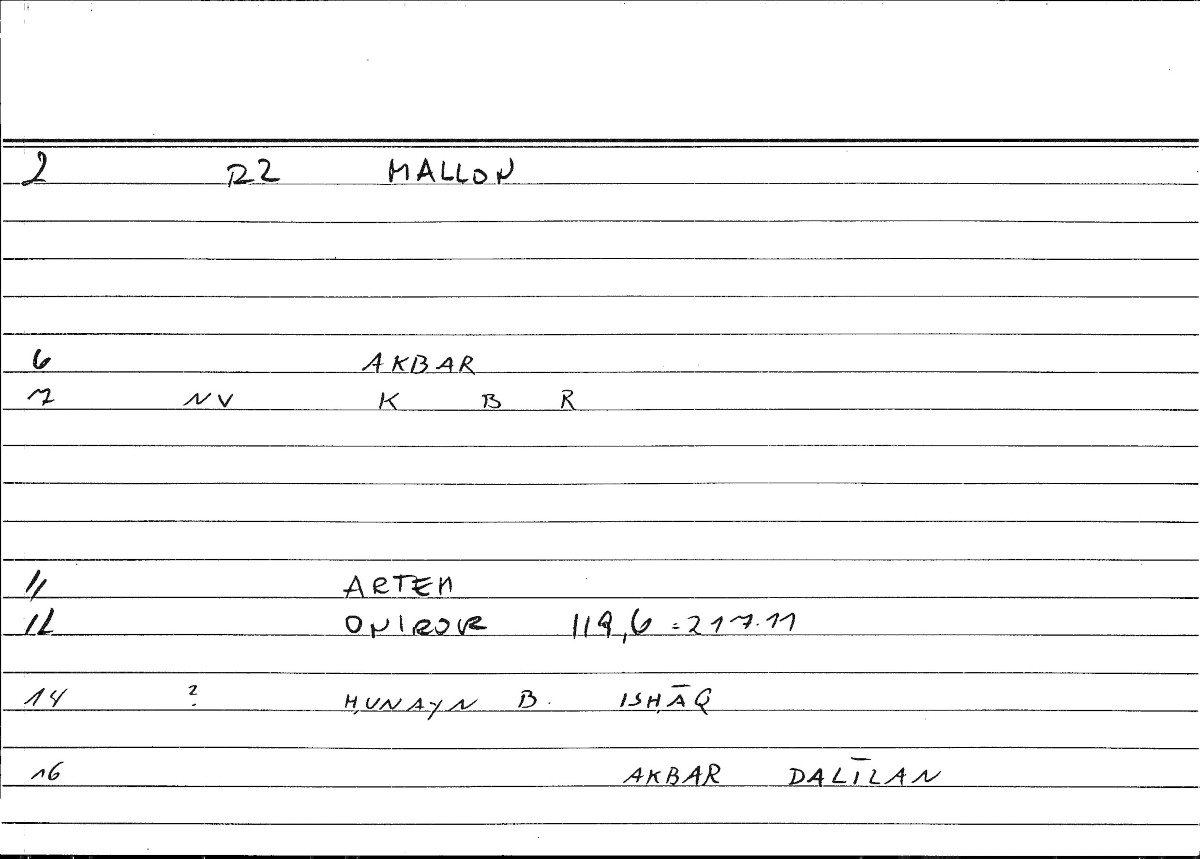 2 R2 MALLON
6 AKBAR
7 NV K B R
11 ARTEM
12 ONIROK 119,6 = 217.11
14 ? ḤUNAYN B. ISḤĀQ
16 AKBAR DALĪLAN